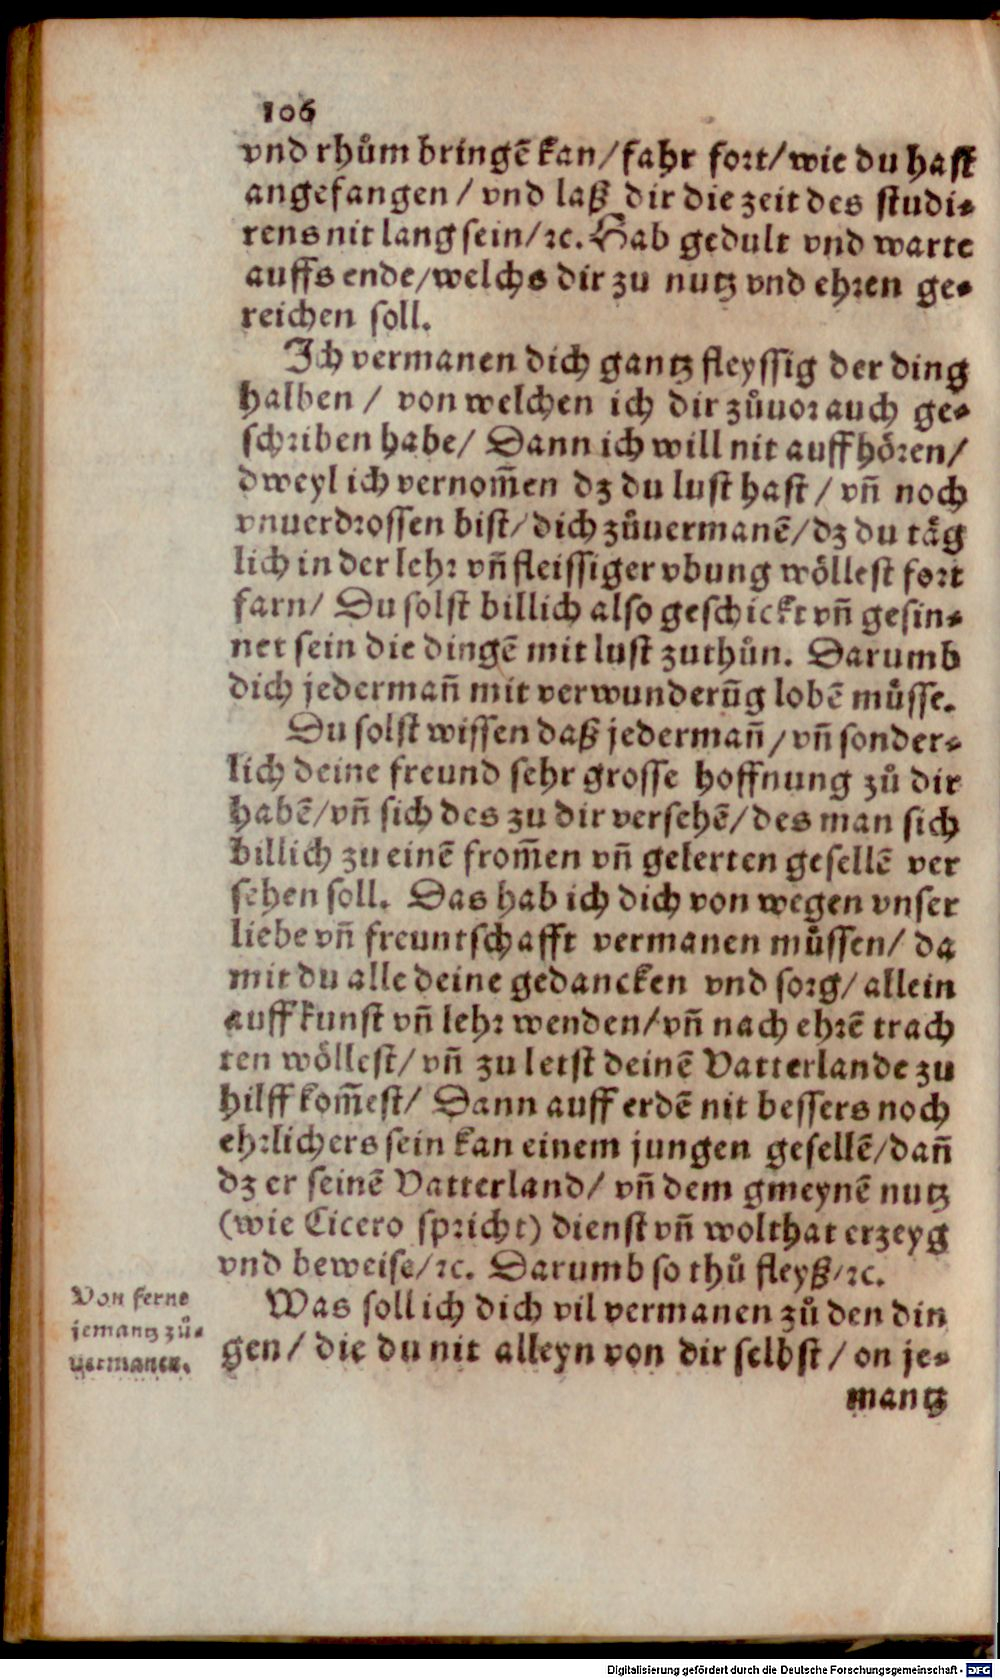 106
vnd rhům bringẽ kan/fahr fort/wie du hast
angefangen / vnd laß dir die zeit des studi-
rens nit lang sein/ꝛc. Hab gedult vnd warte
auffs ende/welchs dir zu nutz vnd ehren ge-
reichen soll.
Ich vermanen dich gantz fleyssig der ding
halben / von welchen ich dir zůuor auch ge-
schriben habe/ Dann ich will nit auffhören/
dweyl ich vernom̃en dz du lust hast / vñ noch
vnuerdrossen bist/dich zůuermanẽ/dz du täg
lich in der lehr vñ fleissiger vbung wöllest fort
farn/ Du solst billich also geschickt vñ gesin-
net sein die dingẽ mit lust zuthůn. Darumb
dich jedermañ mit verwunderũg lobẽ můsse.
Du solst wissen daß jedermañ/vñ sonder-
lich deine freund sehr grosse hoffnung zů dir
habẽ/vñ sich des zu dir versehẽ/des man sich
billich zu einẽ from̃en vñ gelerten gesellẽ ver
sehen soll. Das hab ich dich von wegen vnser
liebe vñ freuntschafft vermanen můssen/ da
mit du alle deine gedancken vnd sorg/allein
auff kunst vñ lehr wenden/vñ nach ehrẽ trach
ten wöllest/vñ zu letst deinẽ Vatterlande zu
hilff kom̃est/ Dann auff erdẽ nit bessers noch
ehrlichers sein kan einem jungen gesellẽ/dañ
dz er seinẽ Vatterland/ vñ dem gmeynẽ nutz
(wie Cicero spricht) dienst vñ wolthat erzeyg
vnd beweise/ꝛc. Darumb so thů fleyß/ꝛc.
Von ferne
jemantz zů-
uermanen.
Was soll ich dich vil vermanen zů den din
gen/ die du nit alleyn von dir selbst / on je-
mantz
Digitalisierung gefördert durch die Deutsche Forschungsgemeinschaft - DFG